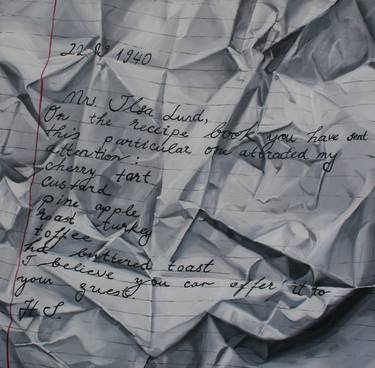 22 09 1940
Mrs. Ilsa Lund,
On the receipe book you have sent
this particular one attracted my
attention:
cherry tart
custard
pine apple
roast turkey
toffee
hot buttered toast
I believe you can offer it to
your guest.